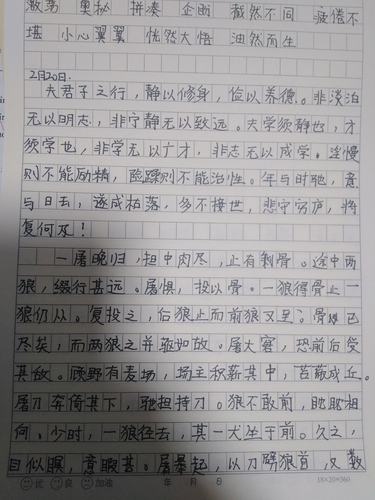 激荡 奥秘 拼凑 企盼 截然不同 疲倦不
堪 小心翼翼 恍然大悟 油然而生
2月20日.
夫君子之行，静以修身，俭以养德。非淡泊
无以明志，非宁静无以致远。夫学须静也，才
须学也，非学无以广才，非志无以成学。淫慢
则不能励精，险躁则不能治性。年与时驰，意
与日去，遂成枯落，多不接世，悲守穷庐，将
复何及！
一屠晚归，担中肉尽，止有剩骨。途中两
狼，缀行甚远。屠惧，投以骨。一狼得骨止一
狼仍从。复投之，后狼止而前狼又至；骨已
尽矣，而两狼之并驱如故。屠大窘，恐前后受
其敌。顾野有麦场，场主积薪其中，苫蔽成丘。
屠乃奔倚其下，驰担持刀。狼不敢前，眈眈相
向。少时，一狼径去，其一犬坐于前。久之，
目似瞑，意暇甚。屠暴起，以刀劈狼首，又数
优 良 加油 年 月 日 18×20=360